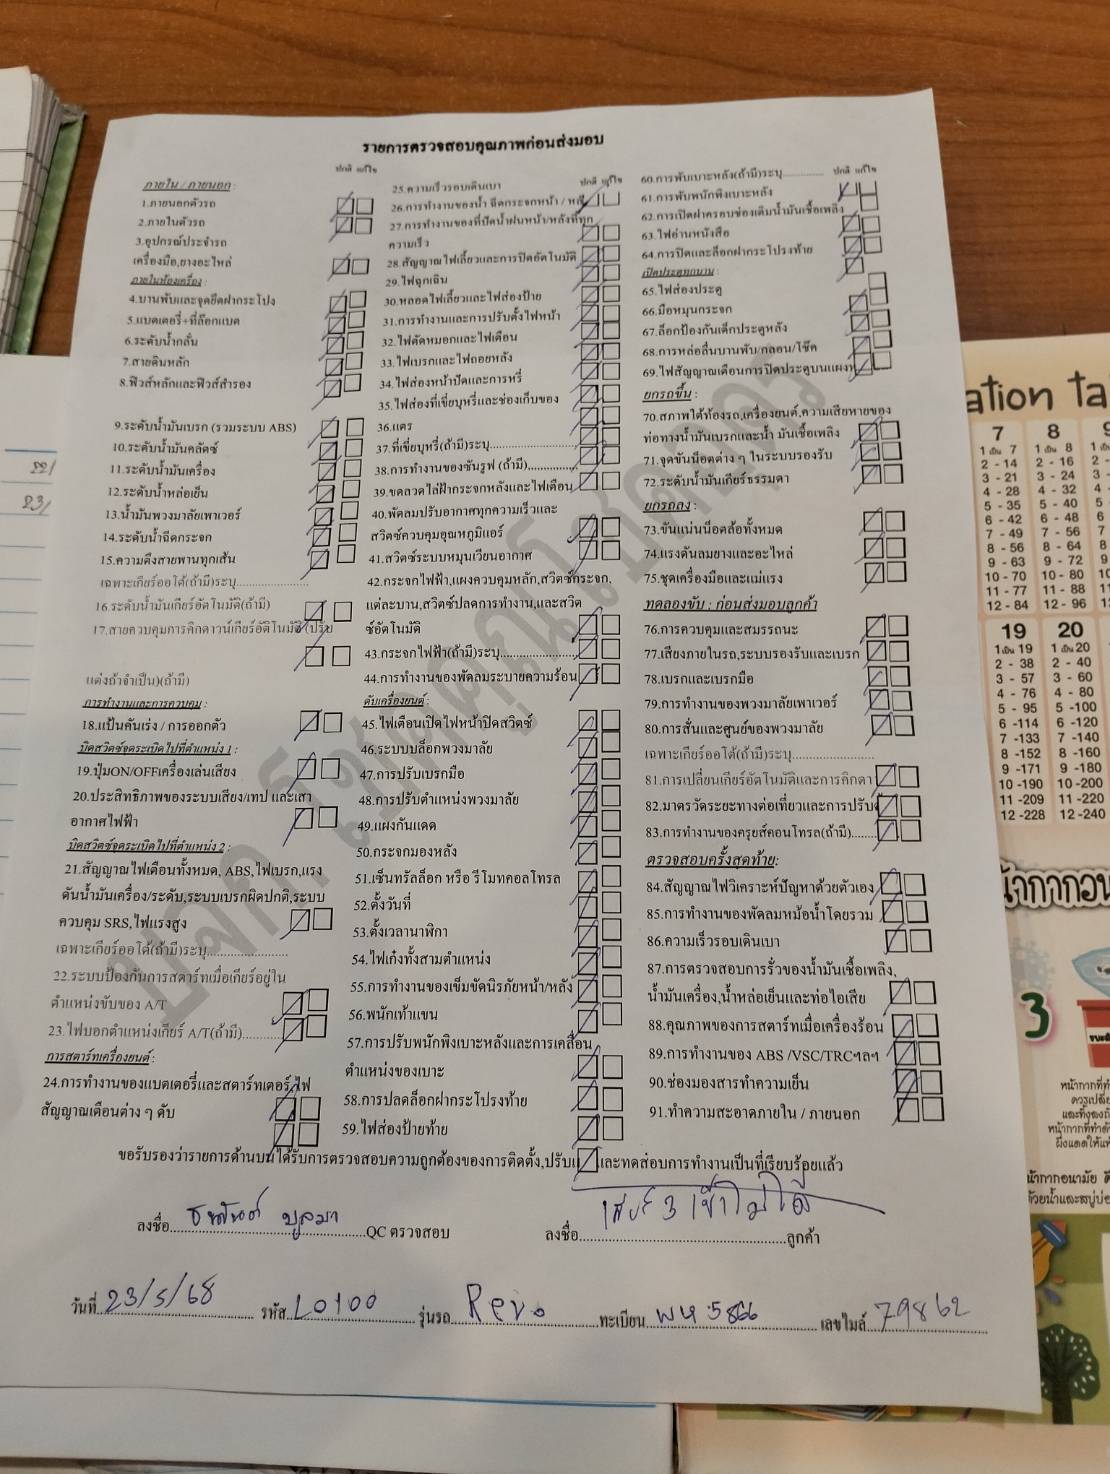 รายการตรวจสอบคุณภาพก่อนส่งมอบ
ปกติ แก้ไข
ภายใน / ภายนอก :
1.ภายนอกตัวรถ
2.ภายในตัวรถ
3.อุปกรณ์ประจำรถ
เครื่องมือ,ยางอะไหล่
ภายในห้องเครื่อง :
4.บานพับและจุดยึดฝากระโปง
5.แบตเตอรี่+ที่ล๊อกแบต
6.ระดับน้ำกลั่น
7.สายดินหลัก
8.ฟิวส์หลักและฟิวส์สำรอง
9.ระดับน้ำมันเบรก (รวมระบบ ABS)
10.ระดับน้ำมันคลัตซ์
11.ระดับน้ำมันเครื่อง
12.ระดับน้ำหล่อเย็น
13.น้ำมันพวงมาลัยเพาเวอร์
14.ระดับน้ำฉีดกระจก
15.ความตึงสายพานทุกเส้น
เฉพาะเกียร์ออโต้(ถ้ามี)ระบุ
16.ระดับน้ำมันเกียร์อัตโนมัติ(ถ้ามี)
17.สายควบคุมการคิกดาวน์เกียร์อัติโนมัติ (ปรับ
แต่งถ้าจำเป็น)(ถ้ามี)
การทำงานและการควบคุม :
18.แป้นคันเร่ง / การออกตัว
บิดสวิตซ์จุดระเบิดไปที่ตำแหน่ง 1 :
19.ปุ่มON/OFFเครื่องเล่นเสียง
20.ประสิทธิภาพของระบบเสียง/เทป และเสา
อากาศไฟฟ้า
บิดสวิตซ์จุดระเบิดไปที่ตำแหน่ง 2 :
21.สัญญาณไฟเตือนทั้งหมด, ABS,ไฟเบรก,แรง
ดันน้ำมันเครื่อง/ระดับ,ระบบเบรกผิดปกติ,ระบบ
ควบคุม SRS,ไฟแรงสูง
เฉพาะเกียร์ออโต้(ถ้ามี)ระบุ
22.ระบบป้องกันการสตาร์ทเมื่อเกียร์อยู่ใน
ตำแหน่งขับของ A/T
23.ไฟบอกตำแหน่งเกียร์ A/T(ถ้ามี)
การสตาร์ทเครื่องยนต์ :
24.การทำงานของแบตเตอรี่และสตาร์ทเตอร์,ไฟ
สัญญาณเตือนต่าง ๆ ดับ
ปกติ แก้ไข
25.ความเร็วรอบเดินเบา
26.การทำงานของน้ำ ฉีดกระจกหน้า / หลัง
27.การทำงานของที่ปัดน้ำฝนหน้า/หลังที่ทุก
ความเร็ว
28.สัญญาณไฟเลี้ยวและการปิดอัตโนมัติ
29.ไฟฉุกเฉิน
30.หลอดไฟเลี้ยวและไฟส่องป้าย
31.การทำงานและการปรับตั้งไฟหน้า
32.ไฟตัดหมอกและไฟเตือน
33.ไฟเบรกและไฟถอยหลัง
34.ไฟส่องหน้าปัดและการหรี่
35.ไฟส่องที่เขี่ยบุหรี่และช่องเก็บของ
36.แตร
37.ที่เขี่ยบุหรี่(ถ้ามี)ระบุ
38.การทำงานของซันรูฟ (ถ้ามี)
39.ขดลวดไล่ฝ้ากระจกหลังและไฟเตือน
40.พัดลมปรับอากาศทุกความเร็วและ
สวิตซ์ควบคุมอุณหภูมิแอร์
41.สวิตซ์ระบบหมุนเวียนอากาศ
42.กระจกไฟฟ้า,แผงควบคุมหลัก,สวิตซ์กระจก,
แต่ละบาน,สวิตซ์ปลดการทำงาน,และสวิต
ซ์อัตโนมัติ
43.กระจกไฟฟ้า(ถ้ามี)ระบุ
44.การทำงานของพัดลมระบายความร้อน
ดับเครื่องยนต์ :
45.ไฟเตือนเปิดไฟหน้าปิดสวิตซ์
46.ระบบบล็อกพวงมาลัย
47.การปรับเบรกมือ
48.การปรับตำแหน่งพวงมาลัย
49.แผงกันแดด
50.กระจกมองหลัง
51.เซ็นทรัลล็อก หรือ รีโมทคอลโทรล
52.ตั้งวันที่
53.ตั้งเวลานาฬิกา
54.ไฟเก๋งทั้งสามตำแหน่ง
55.การทำงานของเข็มขัดนิรภัยหน้า/หลัง
56.พนักเท้าแขน
57.การปรับพนักพิงเบาะหลังและการเคลื่อน
ตำแหน่งของเบาะ
58.การปลดล็อกฝากระโปรงท้าย
59.ไฟส่องป้ายท้าย
ปกติ แก้ไข
60.การพับเบาะหลัง(ถ้ามี)ระบุ
61.การพับพนักพิงเบาะหลัง
62.การเปิดฝาครอบช่องเติมน้ำมันเชื้อเพลิง
63.ไฟอ่านหนังสือ
64.การปิดและล็อกฝากระโปรงท้าย
เปิดประตูทุกบาน :
65.ไฟส่องประตู
66.มือหมุนกระจก
67.ล็อกป้องกันเด็กประตูหลัง
68.การหล่อลื่นบานพับ/กลอน/โช๊ค
69.ไฟสัญญาณเตือนการปิดประตูบนแผงห
ยกรถขึ้น :
70.สภาพใต้ท้องรถ,เครื่องยนต์,ความเสียหายของ
ท่อทางน้ำมันเบรกและน้ำ มันเชื้อเพลิง
71.จุดขันน็อตต่าง ๆ ในระบบรองรับ
72.ระดับน้ำมันเกียร์ธรรมดา
ยกรถลง :
73.ขันแน่นน็อตล้อทั้งหมด
74.แรงดันลมยางและอะไหล่
75.ชุดเครื่องมือและแม่แรง
ทดลองขับ : ก่อนส่งมอบลูกค้า
76.การควบคุมและสมรรถนะ
77.เสียงภายในรถ,ระบบรองรับและเบรก
78.เบรกและเบรกมือ
79.การทำงานของพวงมาลัยเพาเวอร์
80.การสั่นและศูนย์ของพวงมาลัย
เฉพาะเกียร์ออโต้(ถ้ามี)ระบุ
81.การเปลี่ยนเกียร์อัตโนมัติและการคิกดา
82.มาตรวัดระยะทางต่อเที่ยวและการปรับ
83.การทำงานของครุยส์คอนโทรล(ถ้ามี)
ตรวจสอบครั้งสุดท้าย:
84.สัญญาณไฟวิเคราะห์ปัญหาด้วยตัวเอง
85.การทำงานของพัดลมหม้อน้ำโดยรวม
86.ความเร็วรอบเดินเบา
87.การตรวจสอบการรั่วของน้ำมันเชื้อเพลิง,
น้ำมันเครื่อง,น้ำหล่อเย็นและท่อไอเสีย
88.คุณภาพของการสตาร์ทเมื่อเครื่องร้อน
89.การทำงานของ ABS /VSC/TRCฯลฯ
90.ช่องมองสารทำความเย็น
91.ทำความสะอาดภายใน / ภายนอก
ขอรับรองว่ารายการด้านบนได้รับการตรวจสอบความถูกต้องของการติดตั้ง,ปรับแ และทดสอบการทำงานเป็นที่เรียบร้อยแล้ว
เกียร์ 3 เข้าไม่ได้
ลงชื่อ บูลมา QC ตรวจสอบ ลงชื่อ ลูกค้า
วันที่ 23/5/68 รหัส L0100 รุ่นรถ Revo ทะเบียน 5866 เลขไมล์ 79862
22/
23/
ation ta
7 8
1 เป็น 7 1 เป็น 8
2 - 14 2 - 16
3 - 21 3 - 24
4 - 28 4 - 32
5 - 35 5 - 40
6 - 42 6 - 48
7 - 49 7 - 56
8 - 56 8 - 64
9 - 63 9 - 72
10 - 70 10 - 80
11 - 77 11 - 88
12 - 84 12 - 96
19 20
1 เป็น 19 1 เป็น 20
2 - 38 2 - 40
3 - 57 3 - 60
4 - 76 4 - 80
5 - 95 5 -100
6 -114 6 -120
7 -133 7 -140
8 -152 8 -160
9 -171 9 -180
10 -190 10 -200
11 -209 11 -220
12 -228 12 -240
3